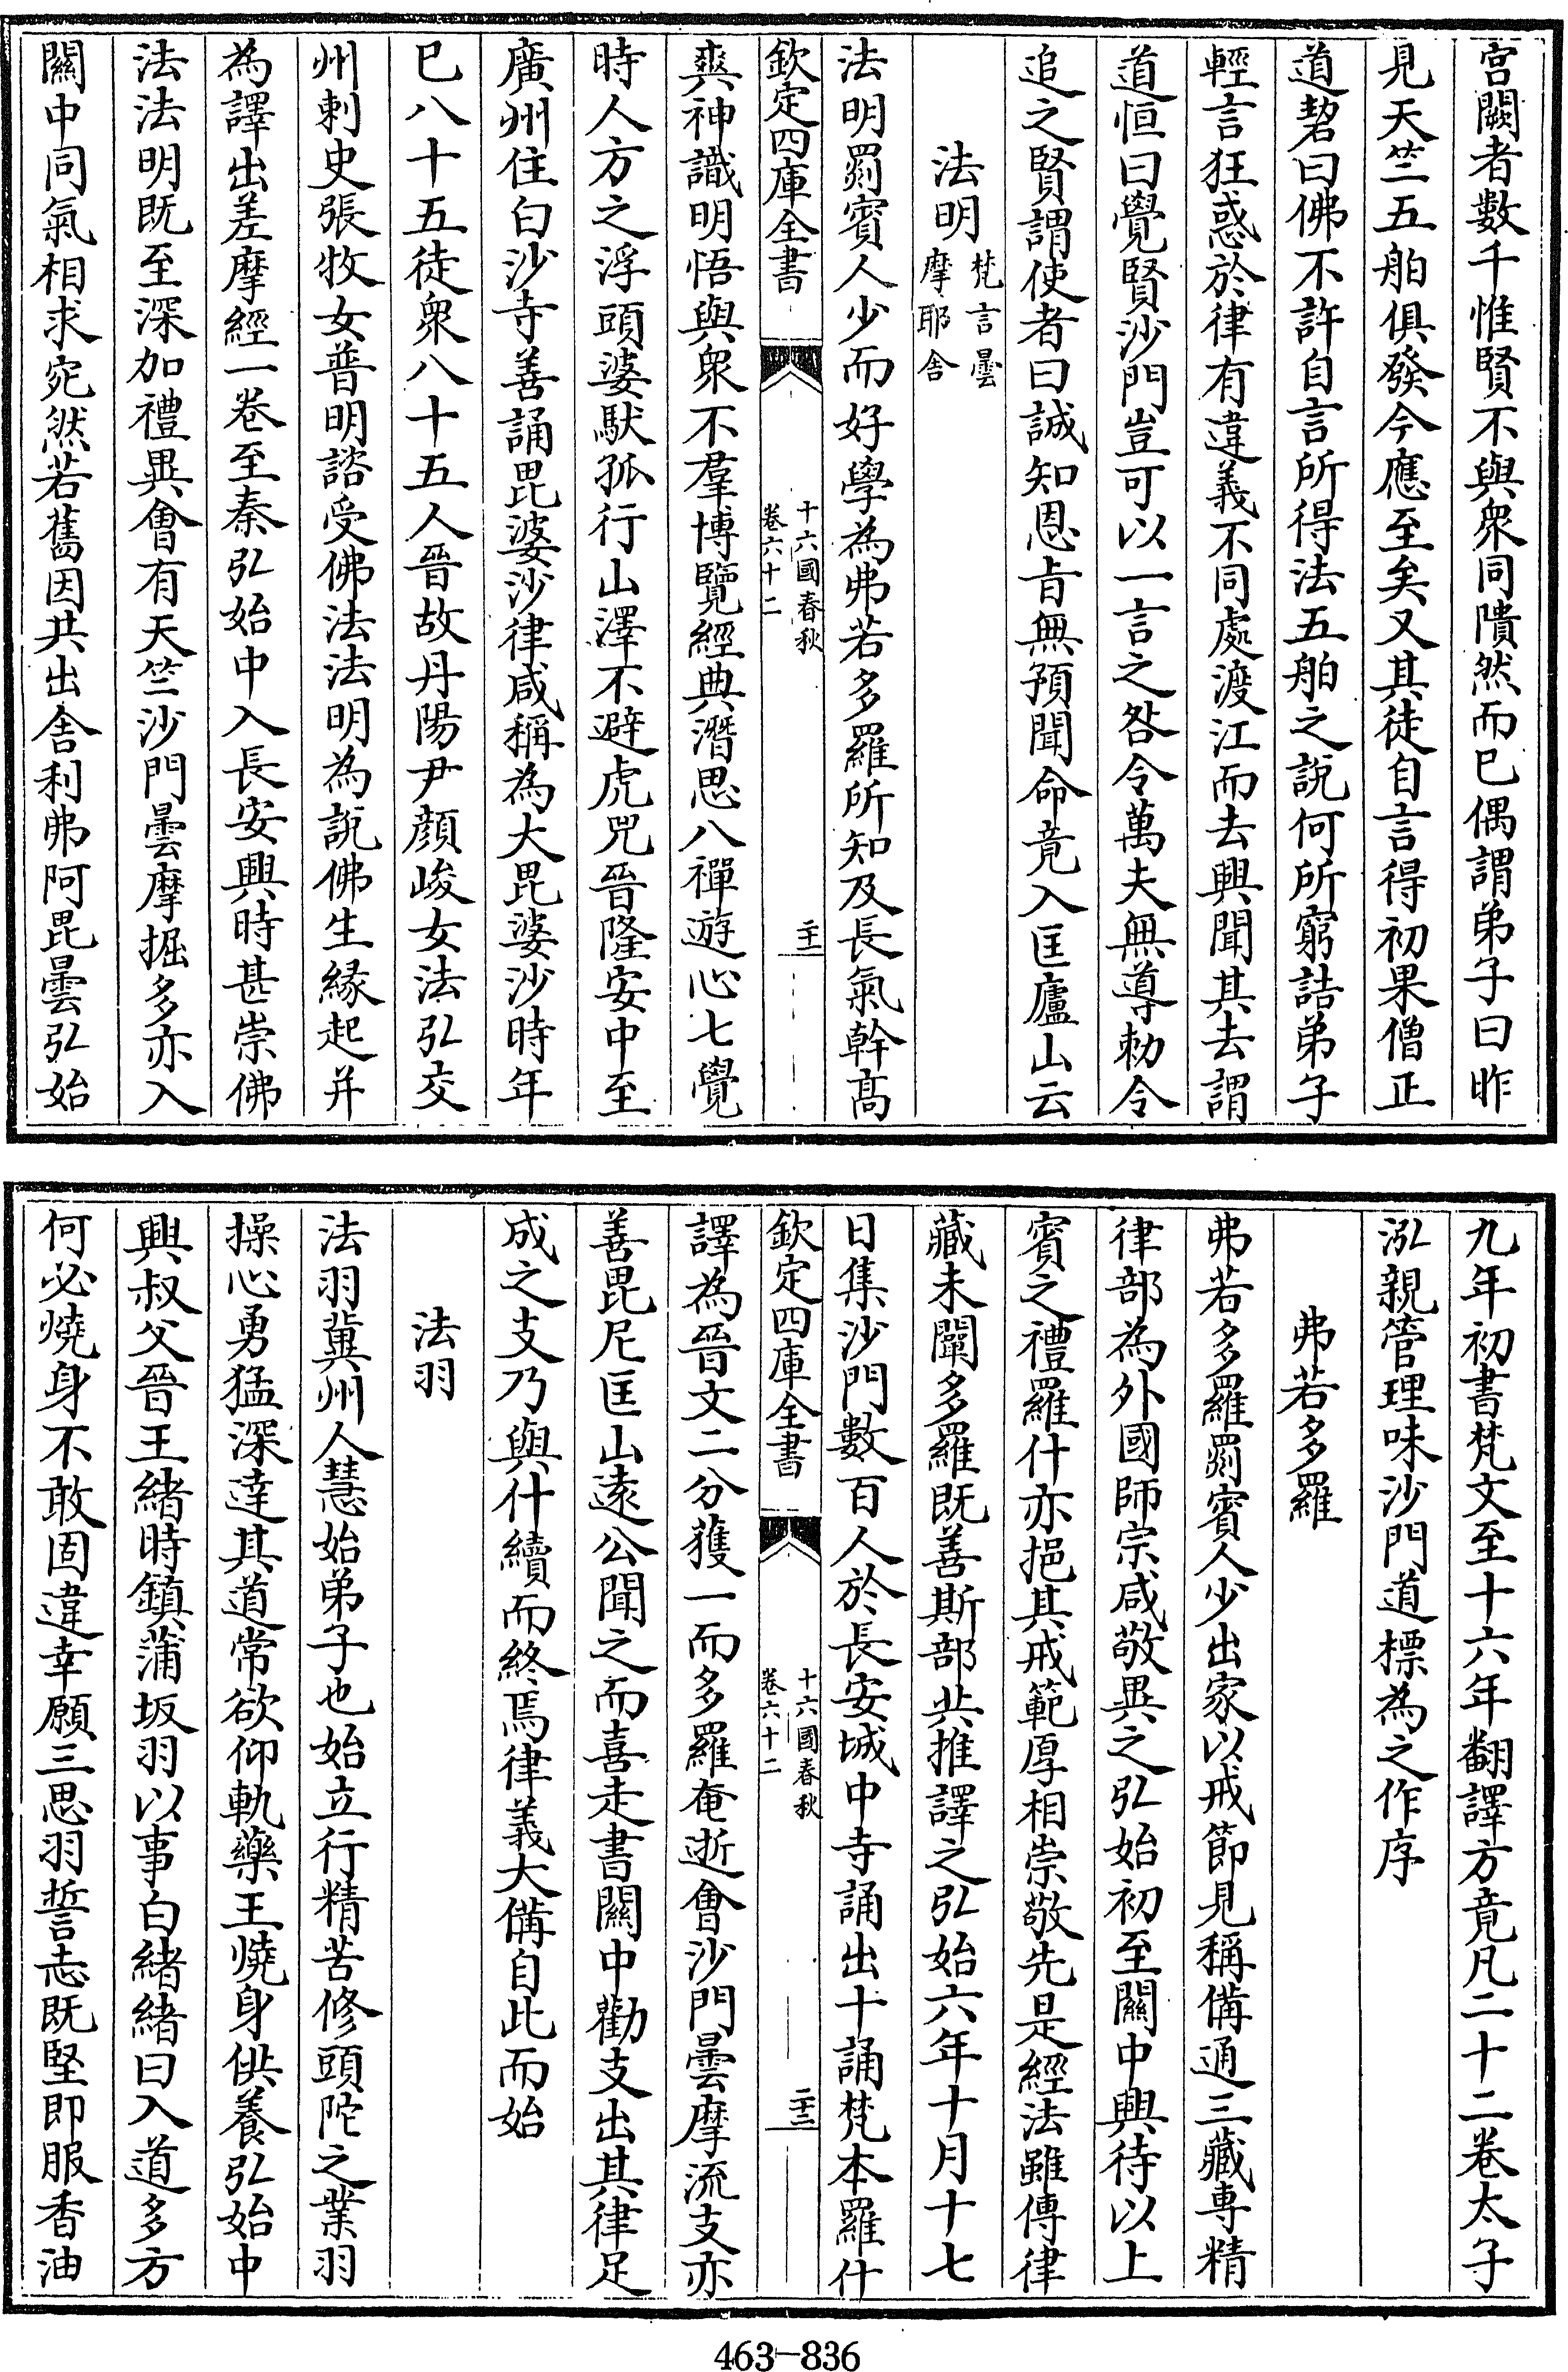 宮闕者數千惟賢不與衆同隤然而已偶謂弟子曰昨
見天竺五舶俱發今應至矣又其徒自言得初果僧正
道䂮曰佛不許自言所得法五舶之說何所窮詰弟子
輕言狂惑於律有違義不同處渡江而去興聞其去謂
道恒曰覺賢沙門豈可以一言之咎令萬夫無導勅令
追之賢謂使者曰誠知恩㫖無預聞命竟入匡廬山云
法明梵言曇摩耶舍
法明罽賓人少而好學為弗若多羅所知及長氣幹髙
欽定四庫全書
十六國春秋
卷六十二
二十二
爽神識明悟與衆不羣博覽經典潛思八禪遊心七覺
時人方之浮頭婆馱孤行山澤不避虎兕晉隆安中至
廣州住白沙寺善誦毘婆沙律咸稱為大毘婆沙時年
已八十五徒衆八十五人晉故丹陽尹顏峻女法弘交
州刺史張牧女普明諮受佛法法明為說佛生緣起并
為譯出差摩經一卷至秦弘始中入長安興時甚崇佛
法法明既至深加禮異會有天竺沙門曇摩掘多亦入
關中同氣相求宛然若舊因共出舍利弗阿毘曇弘始
九年初書梵文至十六年翻譯方竟凡二十二卷太子
泓親管理味沙門道標為之作序
弗若多羅
弗若多羅罽賓人少出家以戒節見稱備通三藏専精
律部為外國師宗咸敬異之弘始初至關中興待以上
賓之禮羅什亦挹其戒範厚相崇敬先是經法雖傳律
藏未闡多羅既善斯部共推譯之弘始六年十月十七
日集沙門數百人於長安城中寺誦出十誦梵本羅什
欽定四庫全書
十六國春秋
卷六十二
二十三
譯為晉文二分獲一而多羅奄逝會沙門曇摩流支亦
善毘尼匡山遠公聞之而喜走書關中勸支出其律足
成之支乃與什續而終焉律義大備自此而始
法羽
法羽冀州人慧始弟子也始立行精苦修頭陀之業羽
操心勇猛深達其道常欲仰軌藥王燒身供養弘始中
興叔父晉王緒時鎮蒲坂羽以事白緒緒曰入道多方
何必燒身不敢固違幸願三思羽誓志既堅即服香油
463-836